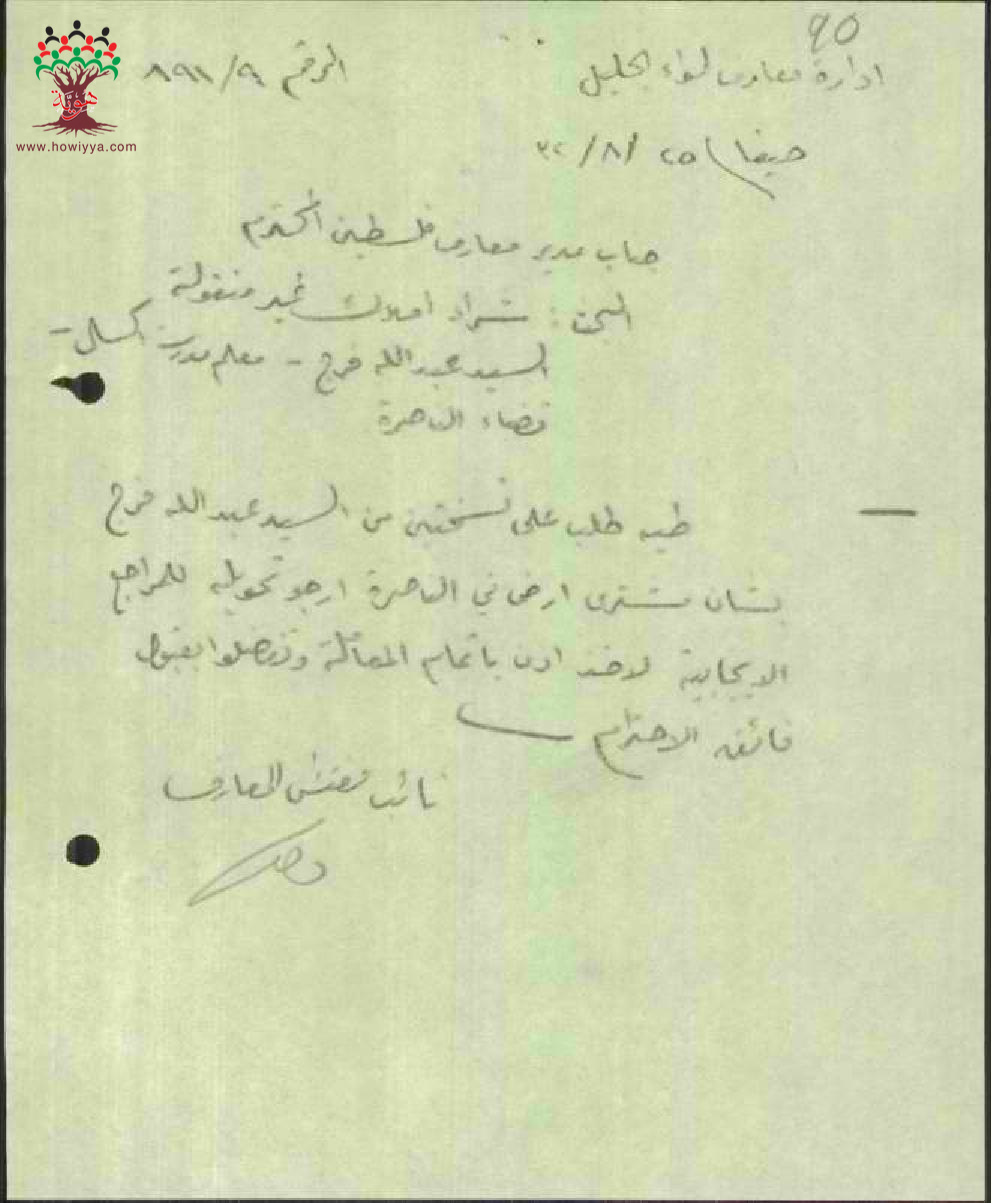 90
ادارة معارف لواء الجليل
الرقم ٨٩١/٩
حيفا ٢٥/٨/٣٢
هوية
www.howiyya.com
جناب مدير معارف فلسطين المحترم
البحث: شراء املاك غير منقولة
السيد عبد الله فرج - معلم مدرسة اكسال -
قضاء الناصرة
طيه طلب على نسختين من السيد عبد الله فرج
بشأن مشترى ارض في الناصرة ارجو تحويله للمراجع
الايجابية لاخذ اذن باتمام المعاملة وتفضلوا بقبول
فائق الاحترام
نائب مفتش المعارف